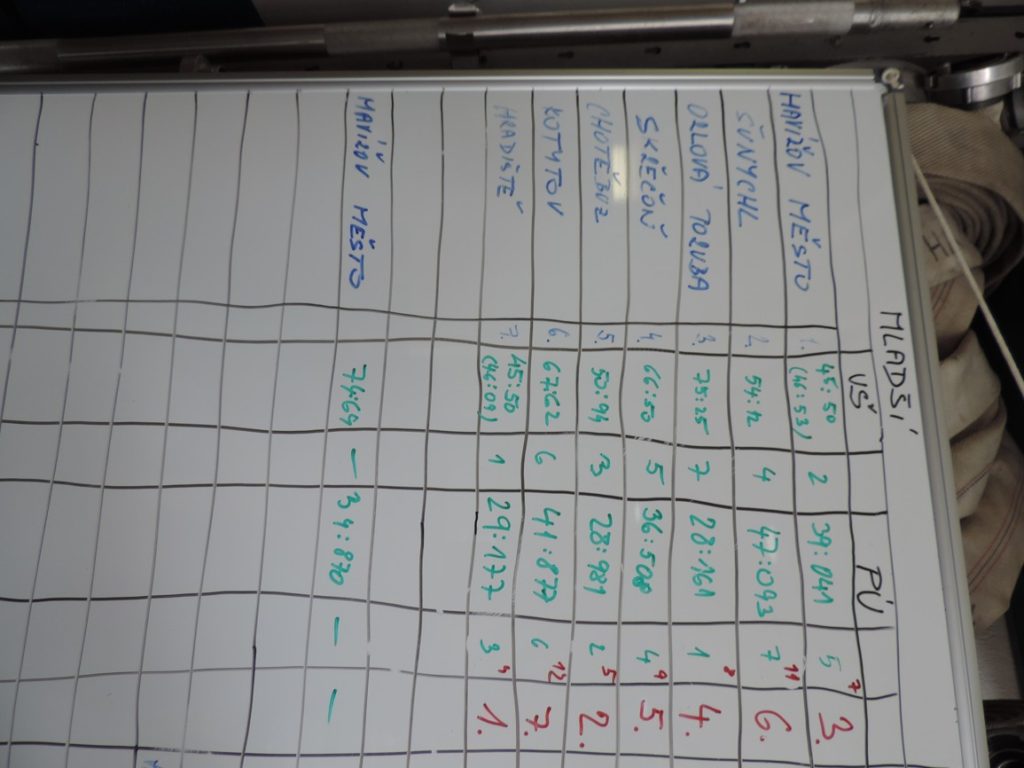 MLADŠÍ
VŠ PÚ
HAVÍŘOV MĚSTO 1. 45:50 (46:53) 2 39:041 5 7 3.
ŠUNYCHL 2. 54:12 4 47:093 7 11 6.
ORLOVÁ PORUBA 3. 75:25 7 28:161 1 8 4.
SKŘEČOŇ 4. 66:50 5 36:508 4 9 5.
CHOTĚBUZ 5. 50:94 3 28:981 2 5 2.
KOTYTOV 6. 67:22 6 41:877 6 12 7.
HRADIŠTĚ 7. 45:50 (46:09) 1 29:177 3 4 1.
HAVÍŘOV MĚSTO 74:64 — 34:870 — —